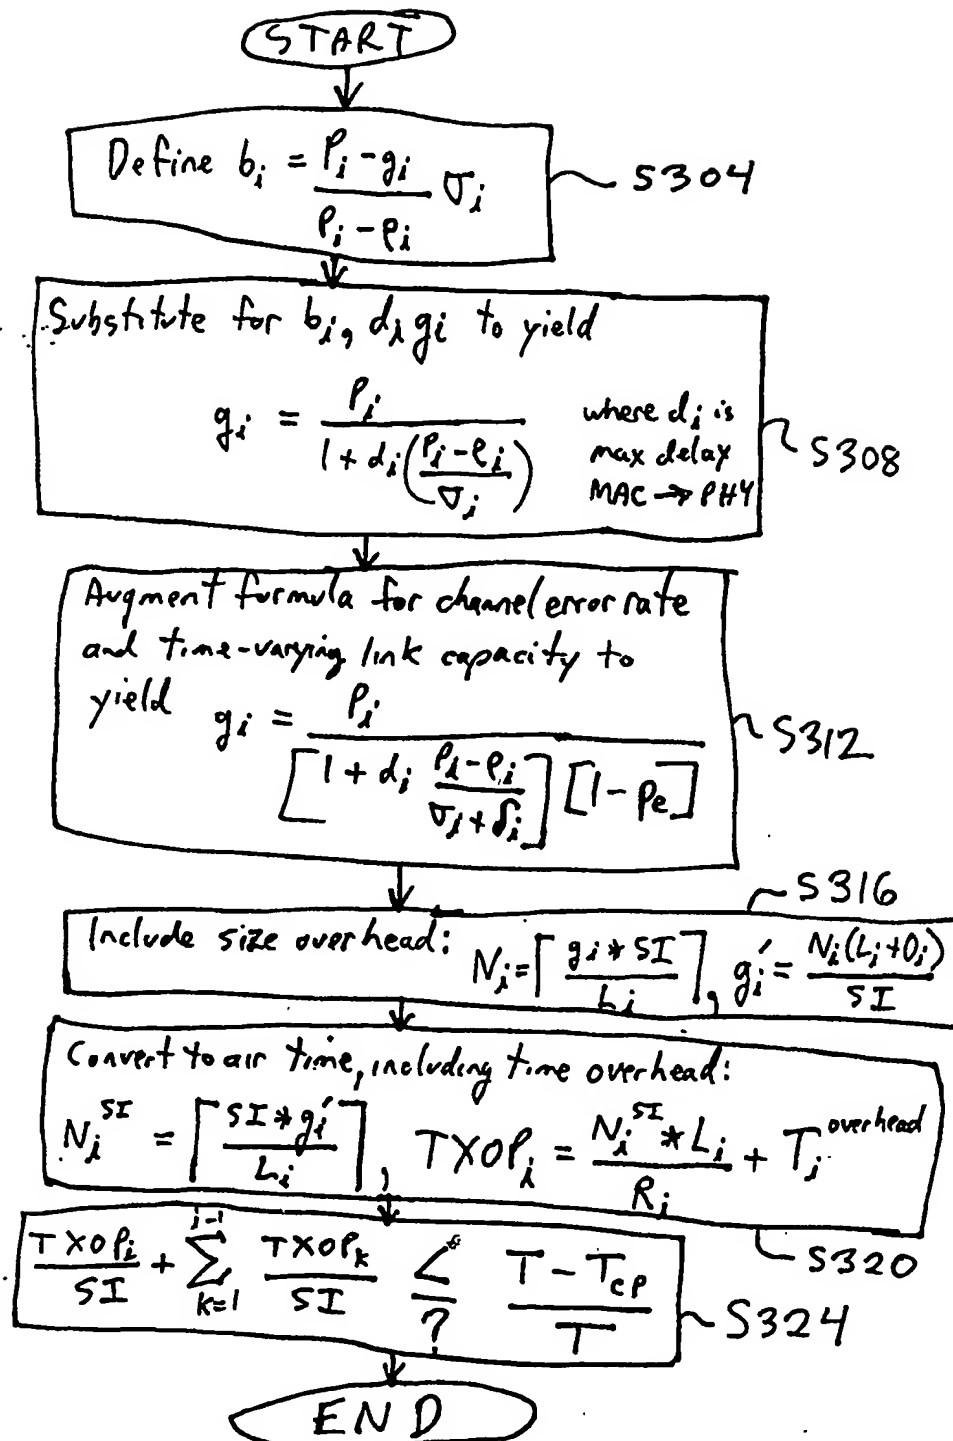 START
Define b_i = (P_i - g_i)/(P_i - ρ_i) σ_i
S304
Substitute for b_i, d_i g_i to yield
g_i = P_i/(1 + d_i((P_i - ρ_i)/σ_i))
where d_i is
max delay
MAC → PHY
S308
Augment formula for channel error rate
and time-varying link capacity to
yield g_i = P_i/([1 + d_i (P_i - ρ_i)/(σ_i + δ_i)] [1 - p_e])
S312
S316
Include size overhead: N_i = ⌈(g_i * SI)/L_i⌉, g_i' = N_i(L_i + O_i)/SI
Convert to air time, including time overhead:
N_i^SI = ⌈(SI * g_i')/L_i⌉, TXOP_i = (N_i^SI * L_i)/R_i + T_i^overhead
S320
TXOP_i/SI + ∑_{k=1}^{i-1} TXOP_k/SI ≤? (T - T_CP)/T
S324
END